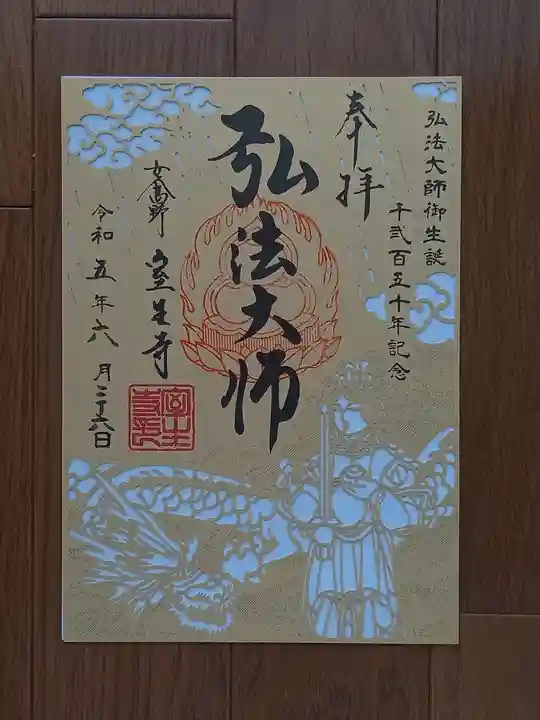 弘法大師御生誕
千弐百五十年記念
奉拝
弘法大師
女高野
室生寺
令和五年六月二十六日